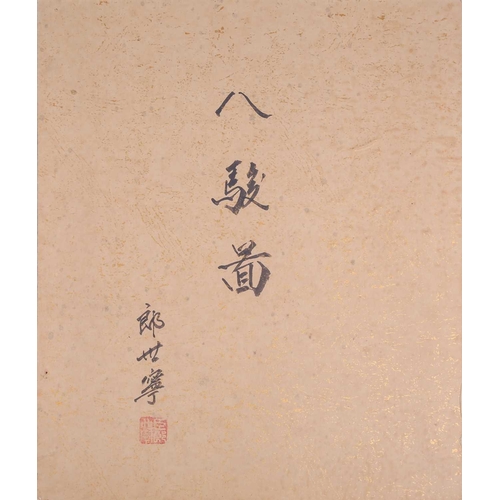 八駿圖
郎世寧